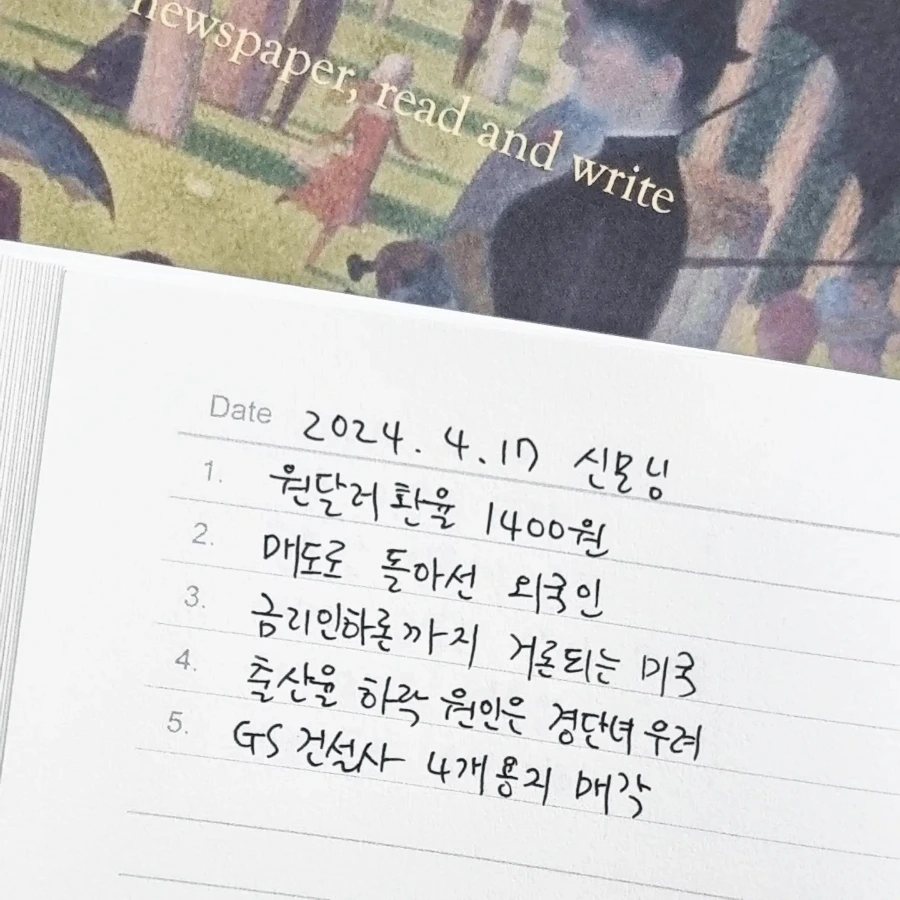 newspaper, read and write
Date 2024. 4. 17 신모닝
1. 원달러 환율 1400원
2. 매도로 돌아선 외국인
3. 금리인하론까지 거론되는 미국
4. 출산율 하락 원인은 경단녀 우려
5. GS 건설사 4개 용지 매각